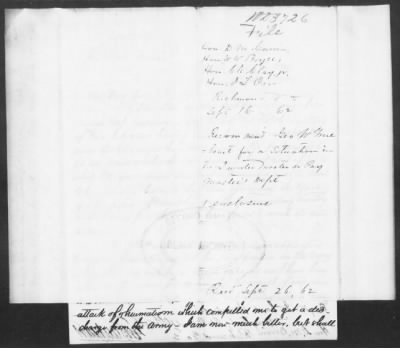 File
Hon. W. W. Boyce,
Hon. C. C. Clay, jr.
Hon. J. L. Orr
Richmond
Sept 16 62
Recommend Geo W
for a Situation in
the Quarter Master or Pay
Master's Dept
1 enclosure
Recd Sept 26, 62
attack of rheumatism which compelled me to get a dis-
charge from the army - I am now much better, but shall